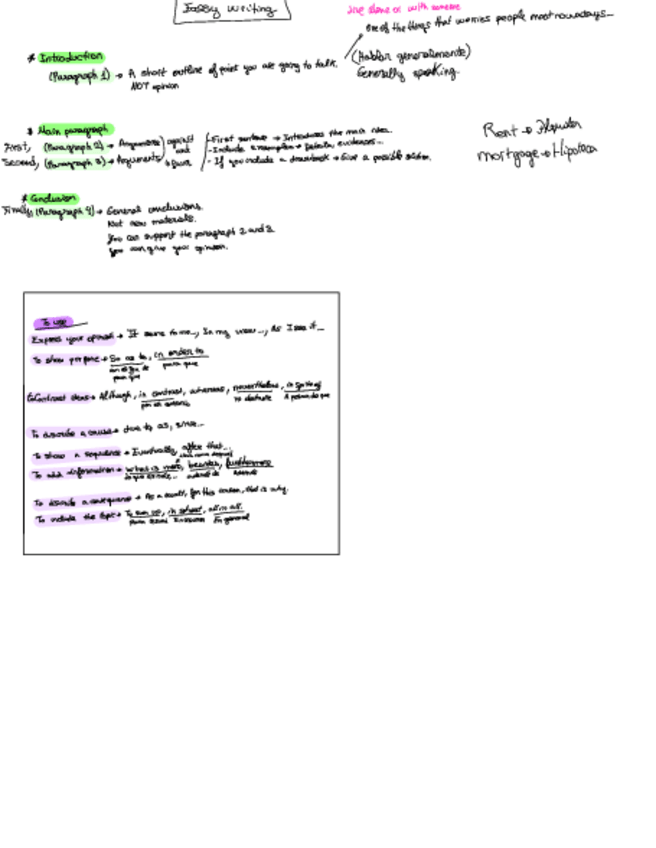 Essay writing
Live alone or with someone
one of the things that worries people most nowadays...
(Hablar generalmente)
Generally speaking.
* Introduction
(Paragraph 1) → A short outline of point you are going to talk.
NOT opinion
* Main paragraph
First, (Paragraph 2) → Arguments against
and
Second, (Paragraph 3) → Arguments
- First sentence → Introduces the main idea.
- Include examples + evidences...
- If you include a drawback → Give a possible
Rent → Alquiler
mortgage → Hipoteca
* Conclusion
Finally, (Paragraph 4) → General conclusions.
Not new materials.
You can support the paragraph 2 and 3.
You can give your opinion.
To use
Express your opinion → It seems to me..., In my view..., As I see it...
To show purpose → So as to, in order to
para que
To contrast ideas → Although, in contrast, whereas, nevertheless, in spite of
por el contrario no obstante A pesar de que
To describe a cause → due to, as, since...
To show a sequence → Eventually, after that...
To add information → What is more, besides, furthermore
además de
To describe a consequence → As a result, for this reason, that is why.
To include the topic → To sum up, in short, all in all.
En general